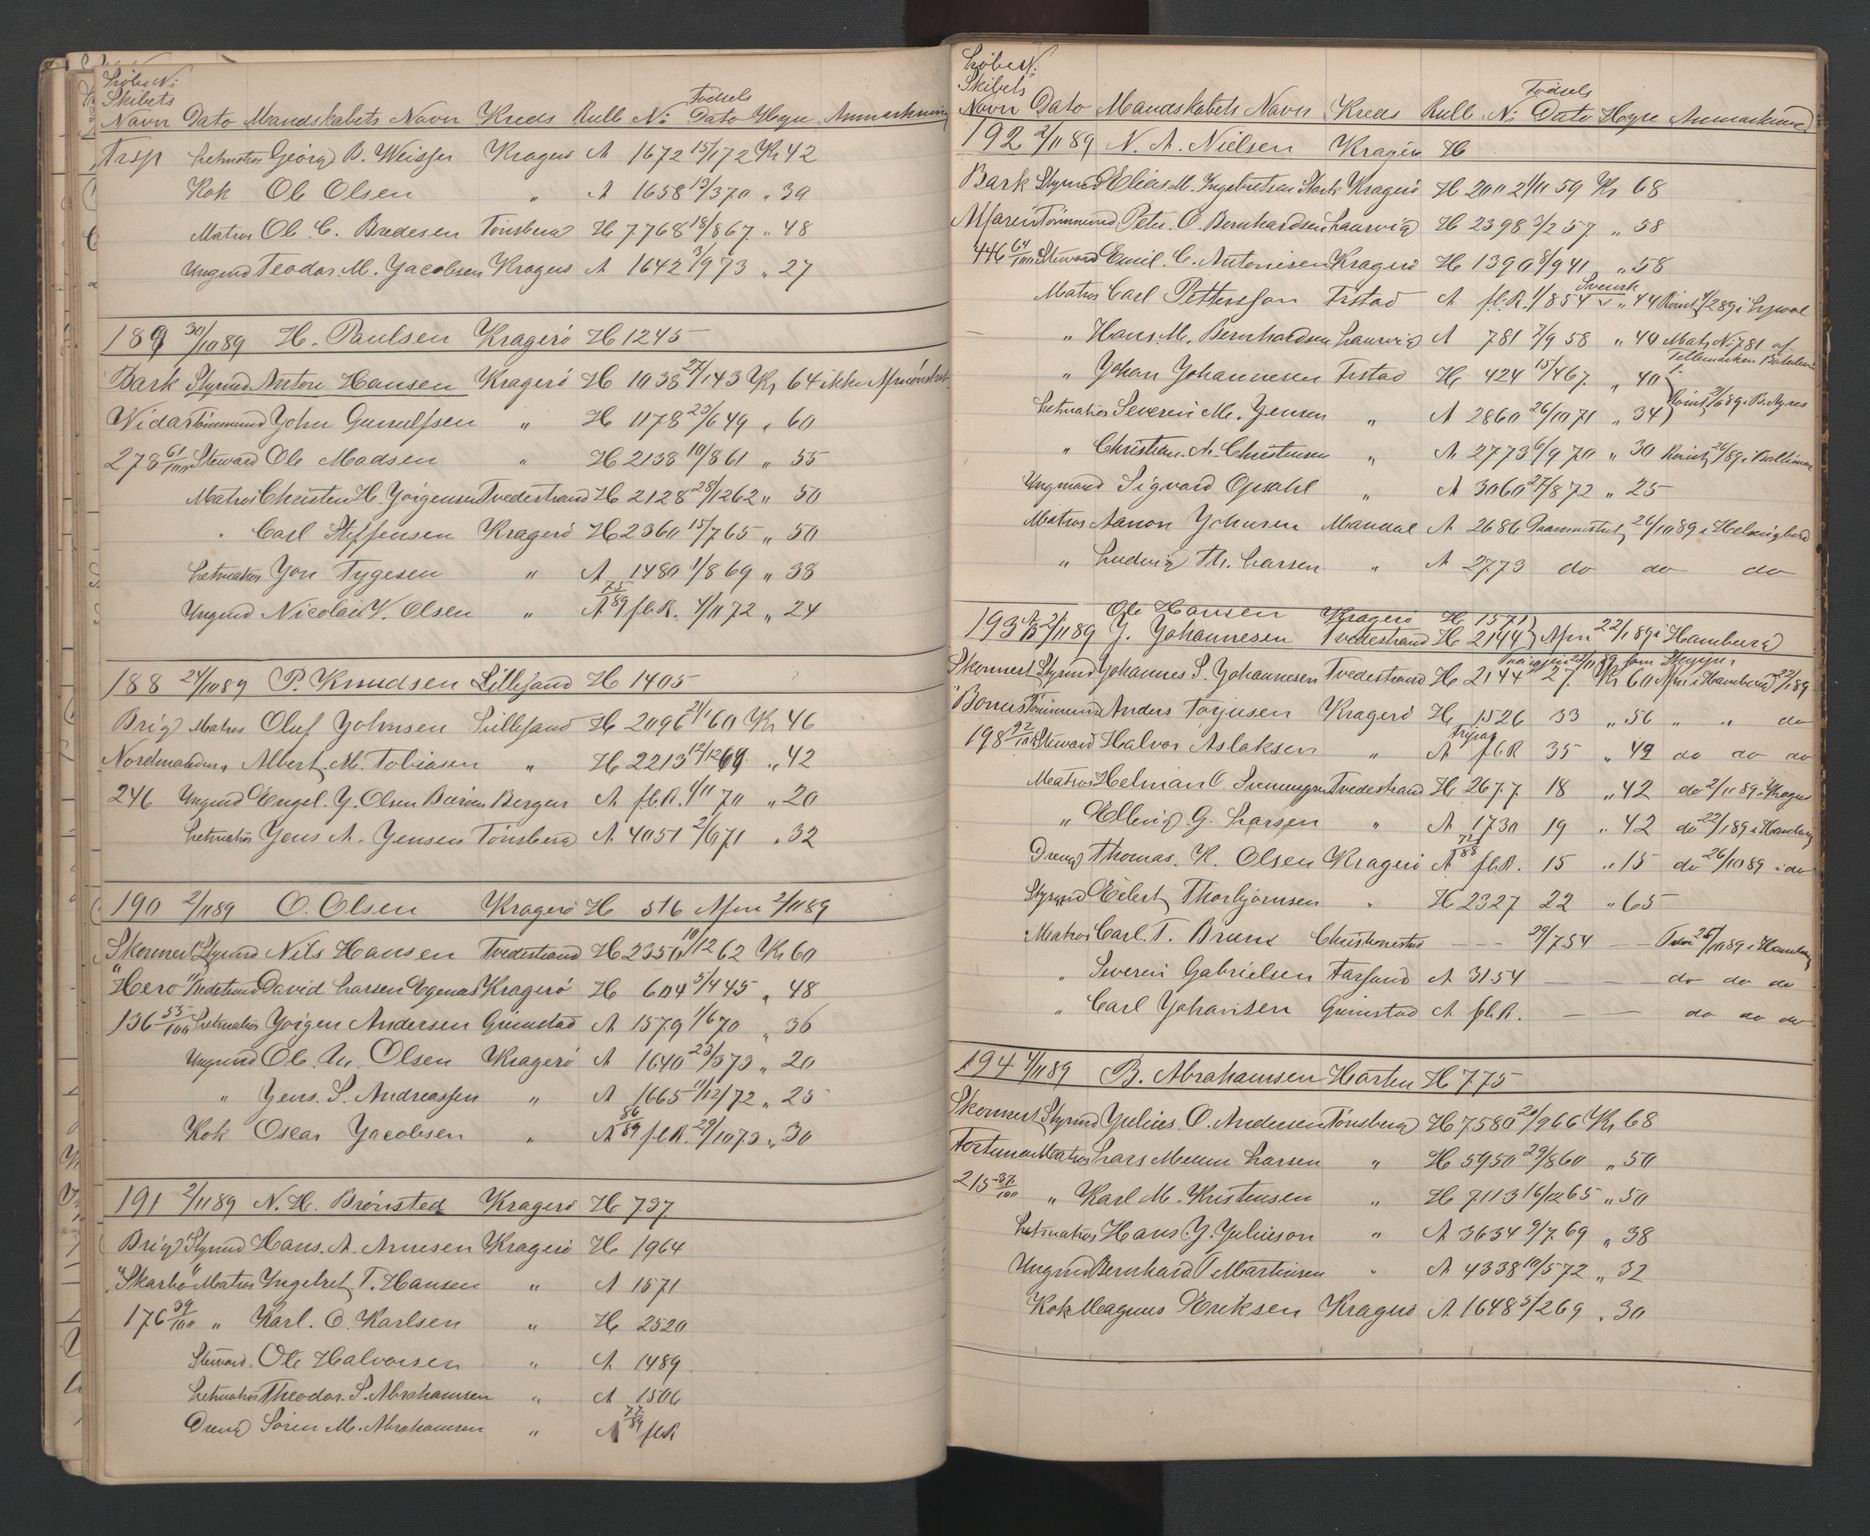 Løbe N:
Skibets
Navn Dato Mandskabets Navn Kreds Rull N: Fødsels Dato Hyre Anmærkning
Trsp Letmatros Georg B. Weisser Kragerø A 1672 15/1 72 Kr 42
Kok Ole Olsen " A 1658 13/3 70 " 39
Matros Ole C. Bredesen Tønsberg H 7768 18/8 67 " 48
Ungmd Teodor M. Jacobsen Kragerø A 1642 3/9 73 " 27
189 30/10 89 H. Paulsen Kragerø H 1245
Bark Styrmd Anton Hansen Kragerø H 1038 27/1 43 Kr 64 ikke Afmønstret
Widar Tømmermd John Gunulfsen " H 1178 23/6 49 " 60
278 61/100 Steward Ole Madsen " H 2138 10/8 61 " 55
Matros Christen H. Jørgensen Tvedestrand H 2128 28/12 62 " 50
" Carl Steffensen Kragerø H 2360 15/7 65 " 50
Letmatros Jon Tygesen " A 1480 1/8 69 " 38
Ungmd Nicolai V. Olsen " A 75/89 fl.R. 4/11 72 " 24
188 24/10 89 P. Knudsen Lillesand H 1405
Brig Matros Oluf Johnsen Lillesand H 2096 21/1 60 Kr 46
Nordmanden " Albert M. Tobiasen " H 2213 12/12 69 " 42
246 Ungmd Engel J. Olsen Bergen A fl.R. 4/11 70 " 20
Letmatros Jens A. Jensen Tønsberg A 4051 2/6 71 " 32
190 2/11 89 O. Olsen Kragerø H 516 Afm 2/11 89
Skonnert Styrmd Nils Hansen Tvedestrand H 2351 10/12 62 Kr 60
"Hero" Bedstmd David Larsen Kragerø H 604 5/4 45 " 48
136 55/100 Letmatros Jørgen Andersen Grimstad A 1579 1/6 70 " 36
Ungmd Ole M. Olsen Kragerø A 1640 23/3 73 " 20
" Jens S. Andreassen " A 1665 11/12 72 " 25
Kok Oscar Jacobsen " A 86/89 fl.R. 29/10 73 " 30
191 2/11 89 N. H. Brønsted Kragerø H 737
Brig Styrmd Hans A. Arnesen Kragerø H 1964
"Skarbo" Matros Ingebret T. Hansen " A 1571
176 39/100 " Karl O. Karlsen " H 2520
Steward Ole Halvorsen " A 1489
Letmatros Theodor S. Abrahamsen " A 1506
Dreng Søren M. Abrahamsen " A 77/89 fl.R
Løbe N:
Skibets
Navn Dato Mandskabets Navn Kreds Rull N: Fødsels Dato Hyre Anmærkning
192 2/11 89 N. A. Nielsen Kragerø H
Bark Styrmd Elias M. Kragerø H 2011 21/11 59 Kr 68
Alfarin Tømmermd Peter O. Bernhardsen Laurvig H 2398 3/2 57 " 58
446 64/100 Steward Emil C. Antonisen Kragerø H 1390 8/9 41 " 58
Matros Carl Pettersson Frstad A fl.R. 1/8 54 Svensk " 44 Rømt 4/2 89 i
" Hans M. Bernhardsen Laurvig A 781 7/9 58 " 40 Mats N: 781 af Tellemarken Bataljon
" Johan Johannesen Frstad H 424 15/4 67 " 40
Letmatros Severin M. Jensen " A 2860 26/10 71 " 34 Rømt 2/6 89 i B. Ayres
" Christian A. Christensen " A 2773 6/9 70 " 30 Rømt 26/ 89 i Baltimor
Ungmand Sigvard Opsahl " A 3060 27/8 72 " 25
Matros Aanon Johnsen Mandal A 2686 Paamønstret 26/10 89 i Helsingborg
" Ludvig Th. Larsen " A 2773 do do do
193 A Ole Hansen Kragerø H 1571
B 2/11 89 J. Johannesen Tvedestrand H 2144 Afm 22/1 89 i Hamburg
Skonnert Styrmd Johannes S. Johannesen Tvedestrand H 2144 27 Kr 60 Afm i Hamburg 22/1 89
Bonus Tømmermd Anders Torjusen Kragerø H 1526 33 " 56 " " do
198 92/100 Steward Halvor Aslaksen " A fl.R 35 " 49 do do do
Matros Helman O. Tvedestrand H 2677 18 " 42 do 2/11 89 i Kragerø
" Ellevig G. Larsen " A 1730 19 " 42 do 22/1 89 i Hamburg
Dreng Thomas K. Olsen Kragerø A 72/88 fl.R. 15 " 15 do 26/10 89 i do
Styrmd Eilert Thorbjørnsen " H 2327 22 " 65
Matros Carl T. Bruns — — 29/7 54 — 26/10 89 i Hamburg
" Severin Gabrielsen Farsund A 3154 — — do do do
" Carl Johansen Grimstad A fl.R. — — do do do
194 4/11 89 B. Abrahamsen Horten H 775
Skonnert Styrmd Julius O. Andersen Tønsberg H 7580 20/9 66 Kr 68
Fortuna Matros Lars Larsen " H 5950 29/8 60 " 50
215 37/100 " Karl M. Kristensen " H 7113 16/12 65 " 50
Letmatros Hans J. Juliuson " A 3634 9/7 69 " 38
Ungmd Bernhard T Martinsen " A 4338 10/5 72 " 32
Kok Magnus Eriksen Kragerø A 1648 5/2 69 " 30